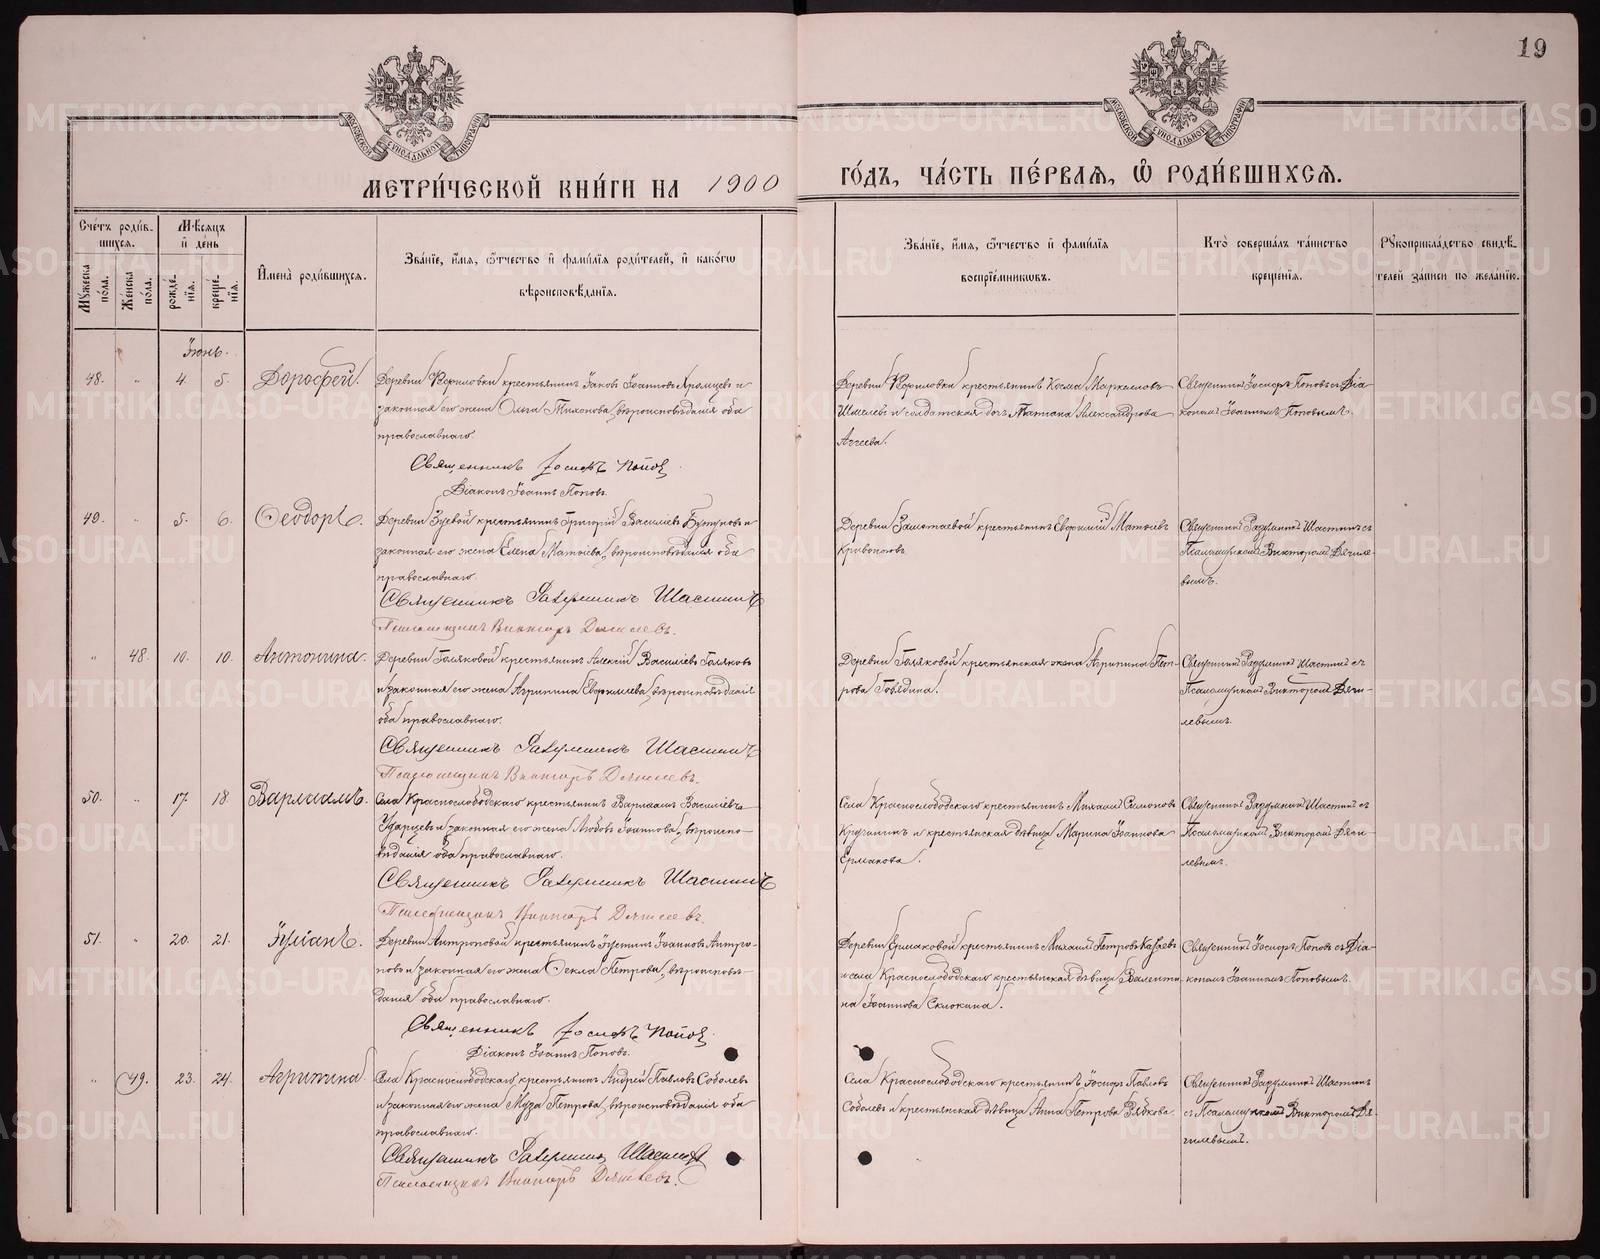 19
МЕТРИ́ЧЕСКОЙ КНИ́ГИ НА 1900 ГО́ДЪ, ЧА́СТЬ ПЕ́РВАЯ, Ѡ РОДИ́ВШИХСЯ.
Сче́тъ роди́в-
шихся.
Мѣсяцъ
и҆ де́нь
Мꙋжеска по́ла.
Же́нска по́ла.
рожде́-
нїя.
креще́-
нїя.
И҆мена̀ роди́вшихся.
Зва́нїе, и҆́мя, ѻ҆́тчество и҆ фами́лїя роди́телей, и҆ како́гѡ
вѣроисповѣ́данїя.
Зва́нїе, и҆́мя, ѻ҆́тчество и҆ фами́лїя
воспрїе́мникѡвъ.
Кто̀ соверша́лъ та́инство
креще́нїя.
Рꙋкоприкла́дство свидѣ́-
телей за́писи по жела́нїю.
Іюнь.
48. " 4. 5. Дорофей.
Деревни крестьянинъ Іаковъ Іоанновъ и
законная его жена Ольга Тихонова, вѣроисповѣданія оба
православнаго.
Священникъ Іосифъ Поповъ
Діаконъ Іоаннъ Поповъ.
Деревни крестьянинъ Косма Маркелловъ
Шмелевъ и солдатская дочь Татіана Александрова
Агѣева.
Священникъ Іосифъ Поповъ съ Діа-
кономъ Іоанномъ Поповымъ.
49. " 5. 6. Ѳеодоръ.
Деревни Зуевой крестьянинъ Григорій Василіевъ и
законная его жена Елена Матѳіева, вѣроисповѣданія оба
православнаго.
Священникъ Шастинъ
Псаломщикъ Викторъ Дягилевъ.
Деревни крестьянинъ Евфимій
Кривоноговъ
Священникъ Шастинъ съ
Псаломщикомъ Викторомъ Дягиле-
вымъ.
" 48. 10. 10. Антонина.
Деревни Голяковой крестьянинъ Алексій Василіевъ Голяковъ
и законная его жена Агриппина Евфимиева, вѣроисповѣданія
оба православнаго.
Священникъ Шастинъ
Псаломщикъ Викторъ Дягилевъ.
Деревни Голяковой крестьянская жена Агрипина Пет-
рова Говядина.
Священникъ Шастинъ съ
Псаломщикомъ Викторомъ Дяги-
левымъ.
50. " 17. 18. Варлаамъ.
Села Краснослободскаго крестьянинъ Варлаамъ Василіевъ
Ударцевъ и законная его жена Любовь Іоаннова, вѣроиспо-
вѣданія оба православнаго.
Священникъ Шастинъ
Псаломщикъ Викторъ Дягилевъ.
Села Краснослободскаго крестьянинъ Михаилъ Симоновъ
и крестьянская дѣвица Марина Іоаннова
Ермакова.
Священникъ Шастинъ съ
Псаломщикомъ Викторомъ Дяги-
левымъ.
51. " 20. 21. Іуліанъ.
Деревни Антроповой крестьянинъ Іустинъ Іоанновъ Антро-
повъ и законная его жена Ѳекла Петрова, вѣроисповѣ-
данія оба православнаго.
Священникъ Іосифъ Поповъ.
Діаконъ Іоаннъ Поповъ.
Деревни Ермаковой крестьянинъ Михаилъ Петровъ
и села Краснослободскаго крестьянская дѣвица Валенти-
на Іоаннова Склюкина.
Священникъ Іосифъ Поповъ съ Діа-
кономъ Іоанномъ Поповымъ.
" 49. 23. 24. Агрипина.
Села Краснослободскаго крестьянинъ Андрей Павловъ Соболевъ
и законная его жена Муза Петрова, вѣроисповѣданія оба
православнаго.
Священникъ Шастинъ
Псаломщикъ Викторъ Дягилевъ.
Села Краснослободскаго крестьянинъ Іосифъ Павловъ
Соболевъ и крестьянская дѣвица Анна Петрова Рябкова.
Священникъ Шастинъ
съ Псаломщикомъ Викторомъ Дя-
гилевымъ.
METRIKI.GASO-URAL.RU